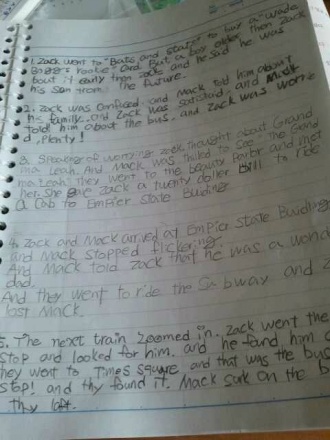 1. Zack went to "Bats and Stats" to buy a Wade
Boggs rookie card. But a boy older then Zack
bout it early then Zack and he said he was
his son from the future.
2. Zack was confused, and Mack told him about
his family. and Zack was satisfaid, and Mack
told him about the bus, and Zack was worrie
d, plenty!
3. Speaking of worrying Zack thought about Grand
ma Leah. And Mack was thilled to see The Grand
ma Leah. They went to the beauty Parlor and met
her. She gave Zack a twenty doller bill to ride
a cab to Empier State Buiding.
4. Zack and Mack arrived at Empier State Buiding
and Mack stopped flickering.
And Mack told Zack that he was a wond
dad.
And they went to ride the Subway and Z
lost Mack.
5. The next train zoomed in. Zack went the
stop and looked for him. and he found him
They went to Times Square, and that was the bus
stop! and thy found it. Mack sunk on the b
thy left.